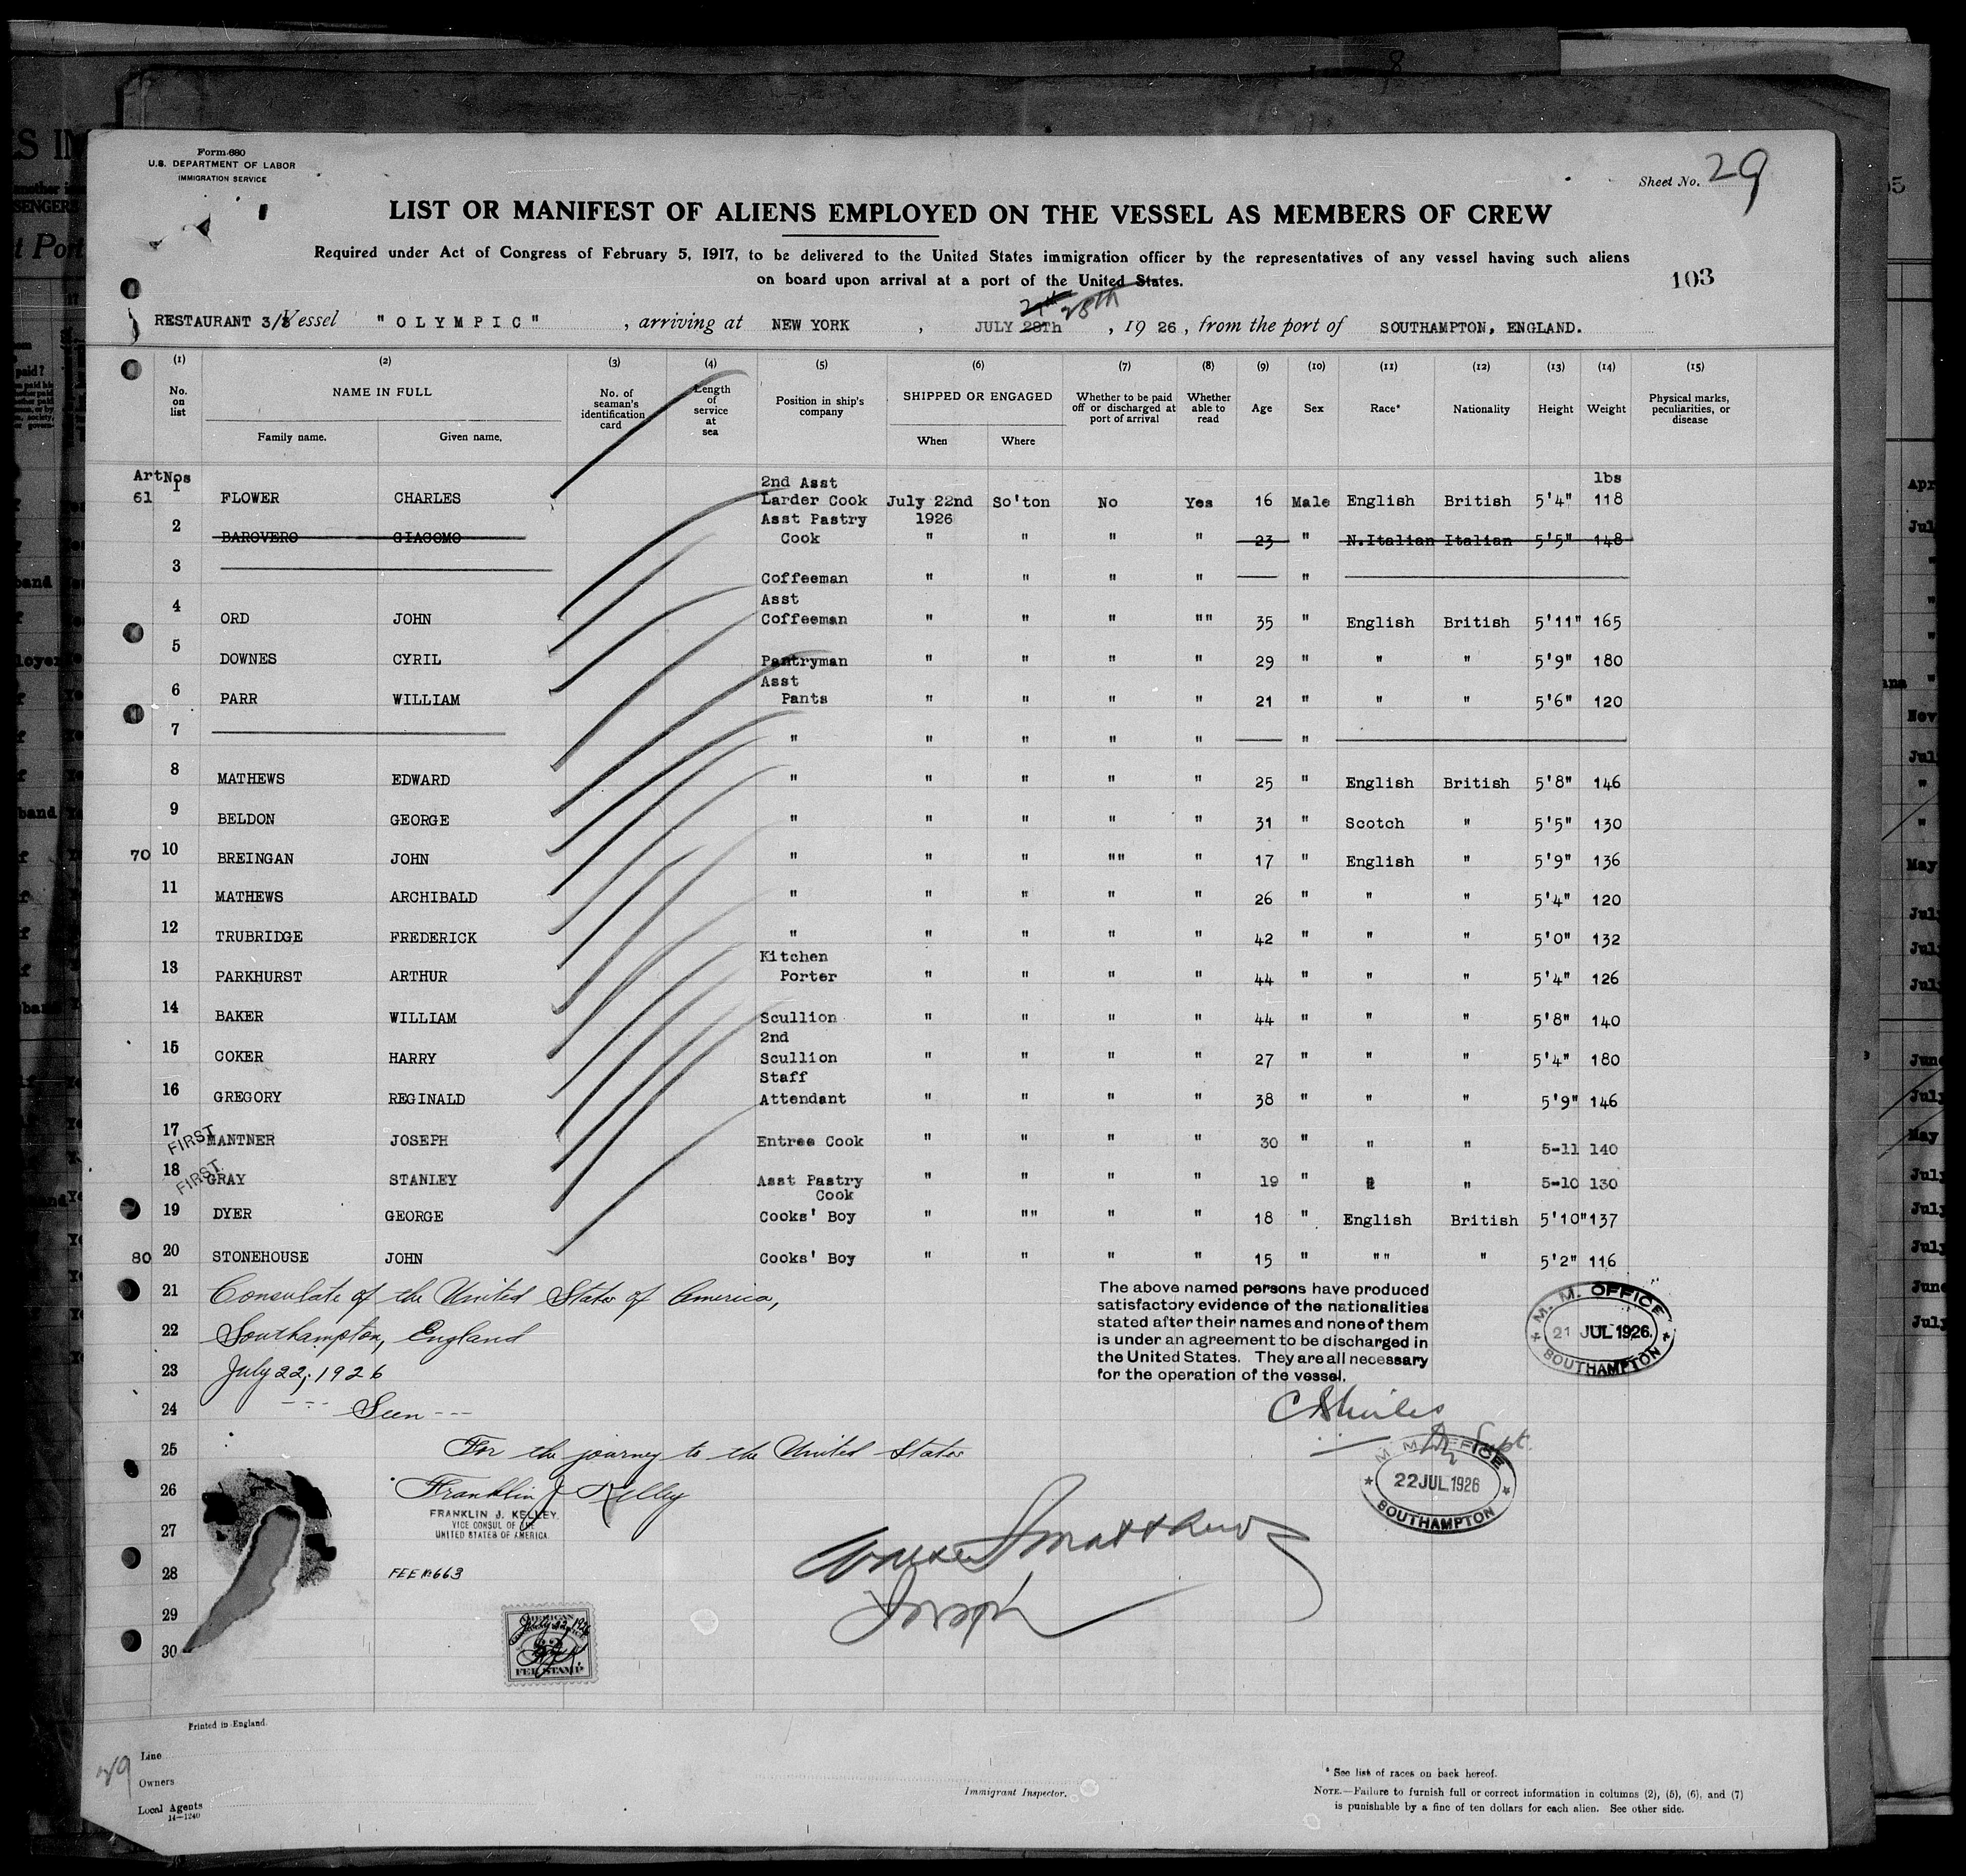 Form 680
U.S. DEPARTMENT OF LABOR
IMMIGRATION SERVICE
Sheet No. 29
LIST OR MANIFEST OF ALIENS EMPLOYED ON THE VESSEL AS MEMBERS OF CREW
Required under Act of Congress of February 5, 1917, to be delivered to the United States immigration officer by the representatives of any vessel having such aliens
on board upon arrival at a port of the United States.
103
29th 28th
RESTAURANT 3/3 Vessel "OLYMPIC", arriving at NEW YORK, JULY 28Th, 1926, from the port of SOUTHAMPTON, ENGLAND.
(1) (2) (3) (4) (5) (6) (7) (8) (9) (10) (11) (12) (13) (14) (15)
No. on list NAME IN FULL Family name. Given name. No. of seaman's identification card Length of service at sea Position in ship's company SHIPPED OR ENGAGED When Where Whether to be paid off or discharged at port of arrival Whether able to read Age Sex Race* Nationality Height Weight Physical marks, peculiarities, or disease
ArtNos lbs
61 1 FLOWER CHARLES 2nd Asst Larder Cook July 22nd 1926 So'ton No Yes 16 Male English British 5'4" 118
2 BAROVERO GIACOMO Asst Pastry Cook " " " " 23 " N.Italian Italian 5'5" 148
3 Coffeeman " " " " "
4 ORD JOHN Asst Coffeeman " " " "" 35 " English British 5'11" 165
5 DOWNES CYRIL Pantryman " " " " 29 " " " 5'9" 180
6 PARR WILLIAM Asst Pants " " " " 21 " " " 5'6" 120
7 " " " " " "
8 MATHEWS EDWARD " " " " " 25 " English British 5'8" 146
9 BELDON GEORGE " " " " " 31 " Scotch " 5'5" 130
70 10 BREINGAN JOHN " " " "" " 17 " English " 5'9" 136
11 MATHEWS ARCHIBALD " " " " " 26 " " " 5'4" 120
12 TRUBRIDGE FREDERICK " " " " " 42 " " " 5'0" 132
13 PARKHURST ARTHUR Kitchen Porter " " " " 44 " " " 5'4" 126
14 BAKER WILLIAM Scullion " " " " 44 " " " 5'8" 140
15 COKER HARRY 2nd Scullion " " " " 27 " " " 5'4" 180
16 GREGORY REGINALD Staff Attendant " " " " 38 " " " 5'9" 146
17 FIRST MANTNER JOSEPH Entree Cook " " " " 30 " " " 5-11 140
18 FIRST GRAY STANLEY Asst Pastry Cook " " " " 19 " " " 5-10 130
19 DYER GEORGE Cooks' Boy " "" " " 18 " English British 5'10" 137
80 20 STONEHOUSE JOHN Cooks' Boy " " " " 15 " "" " 5'2" 116
21 Consulate of the United States of America,
22 Southampton, England
23 July 22, 1926
24 --- Seen ---
25 For the journey to the United States
26 Franklin J Kelley
FRANKLIN J. KELLEY.
VICE CONSUL OF THE
UNITED STATES OF AMERICA.
27
28 FEE No 663
29
30
AMERICAN
FEE STAMP
The above named persons have produced
satisfactory evidence of the nationalities
stated after their names and none of them
is under an agreement to be discharged in
the United States. They are all necessary
for the operation of the vessel.
M. M. OFFICE
21 JUL 1926.
SOUTHAMPTON
Supt.
M. M. OFFICE
22 JUL 1926
SOUTHAMPTON
Printed in England.
Line
Owners
Local Agents
14—1240
Immigrant Inspector.
* See list of races on back hereof.
NOTE.—Failure to furnish full or correct information in columns (2), (5), (6), and (7)
is punishable by a fine of ten dollars for each alien. See other side.